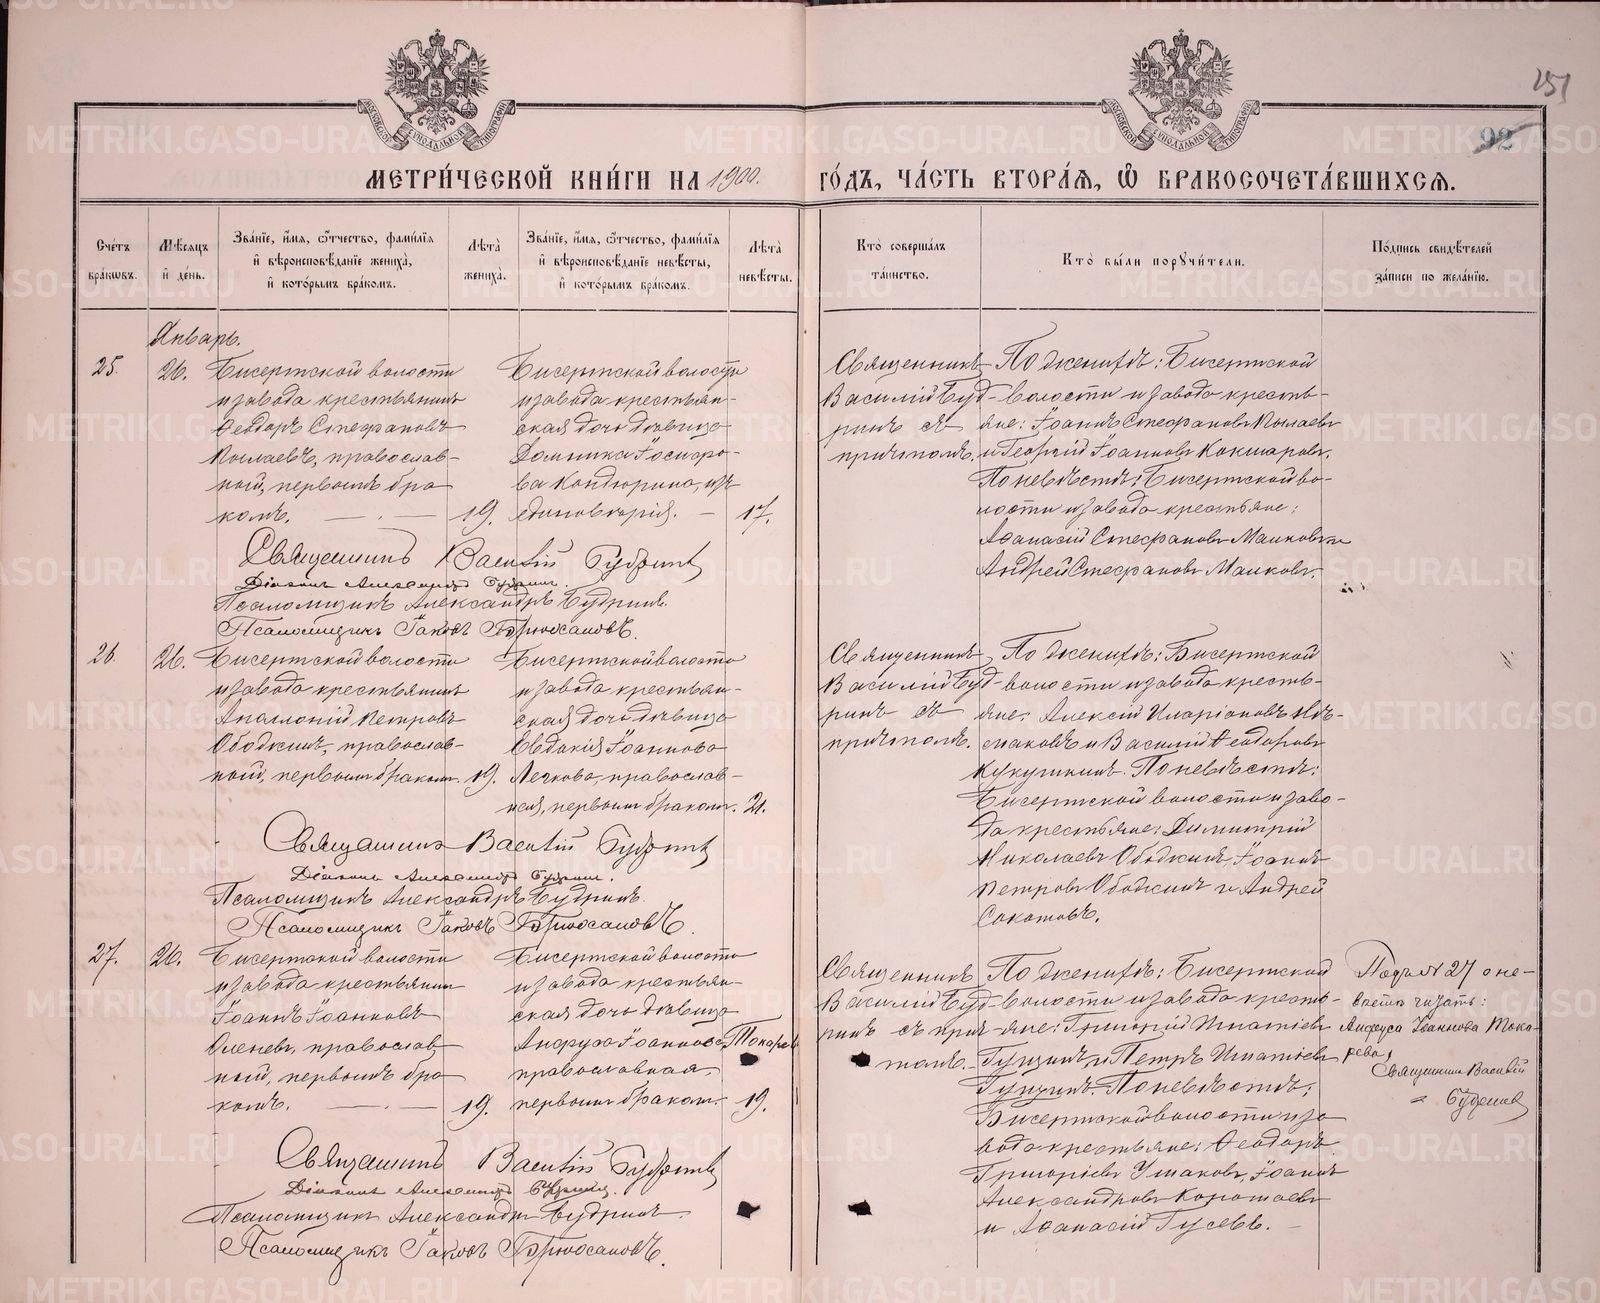 251
92
МЕТРИ́ЧЕСКОЙ КНИ́ГИ НА 1900.
ГО́ДЪ, ЧА́СТЬ ВТОРА́Я, Ѽ БРАКОСОЧЕТА́ВШИХСЯ.
Сче́тъ бра́кѡвъ.
Мѣ́сяцъ и҆ де́нь.
Зва́нїе, и҆́мя, ѻ҆́тчество, фами́лїя и҆ вѣроисповѣ́данїе жениха̀, и҆ кото́рымъ бра́комъ.
Лѣ́та жениха̀.
Зва́нїе, и҆́мя, ѻ҆́тчество, фами́лїя и҆ вѣроисповѣ́данїе невѣ́сты, и҆ кото́рымъ бра́комъ.
Лѣ́та невѣ́сты.
Кто̀ соверша́лъ та́инство.
Кто̀ бы́ли порꙋчи́тели.
По́дпись свидѣ́телей за́писи по жела́нїю.
Январь.
25.
26.
Бисертской волости
и завода крестьянинъ
Ѳеодоръ Стефановъ
православ-
ный, первымъ бра
комъ.
19.
Бисертской волости
и завода крестьян-
ская дочь дѣвица
Домника Іосифо-
ва Кондюрина, изъ
единовѣрія.
17.
Священникъ
Василій Буд-
ринъ съ
причтомъ.
По женихѣ: Бисертской
волости и завода кресть-
яне: Іоаннъ Стефановъ
и Георгій Іоанновъ Кокшаровъ.
По невѣстѣ: Бисертской во-
лости и завода крестьяне:
Аѳанасій Стефановъ Малковъ и
Андрей Стефановъ Малковъ.
Священникъ Василій Будринъ
Діаконъ Александръ Будринъ.
Псаломщикъ Александръ Будринъ.
Псаломщикъ Іаковъ
26.
26.
Бисертской волости
и завода крестьянинъ
Аполлоній Петровъ
Ободкинъ, православ-
ный, первымъ бракомъ.
19.
Бисертской волости
и завода крестьян-
ская дочь дѣвица
Евдокія Іоаннова
Легкова, православ-
ная, первымъ бракомъ.
21.
Священникъ
Василій Буд-
ринъ съ
причтомъ.
По женихѣ: Бисертской
волости и завода кресть-
яне: Алексій Иларіоновъ
и Василій Ѳеодоровъ
Кукушкинъ. По невѣстѣ:
Бисертской волости и заво-
да крестьяне: Димитрій
Николаевъ Ободкинъ, Іоаннъ
Петровъ Ободкинъ и Андрей
Соколовъ.
Священникъ Василій Будринъ
Діаконъ Александръ Будринъ.
Псаломщикъ Александръ Будринъ.
Псаломщикъ Іаковъ
27.
26.
Бисертской волости
и завода крестьянинъ
Іоаннъ Іоанновъ
Оленевъ, православ-
ный, первымъ бра
комъ.
19.
Бисертской волости
и завода крестьян-
ская дочь дѣвица
Анфуса Іоаннова Токарева
православная,
первымъ бракомъ.
19.
Священникъ
Василій Буд-
ринъ съ прич-
томъ.
По женихѣ: Бисертской
волости и завода кресть-
яне: Григорій Игнатіевъ
и Петръ Игнатіевъ
По невѣстѣ:
Бисертской волости и за
вода крестьяне: Ѳеодоръ
Григоріевъ Ушаковъ, Іоаннъ
Александровъ Коротаевъ
и Аѳанасій Гусевъ.
Подъ № 27 о не-
вѣстѣ читать:
Анфуса Іоаннова Тока-
рева,
Священникъ Василій
Будринъ
Священникъ Василій Будринъ
Діаконъ Александръ Будринъ.
Псаломщикъ Александръ Будринъ.
Псаломщикъ Іаковъ
METRIKI.GASO-URAL.RU